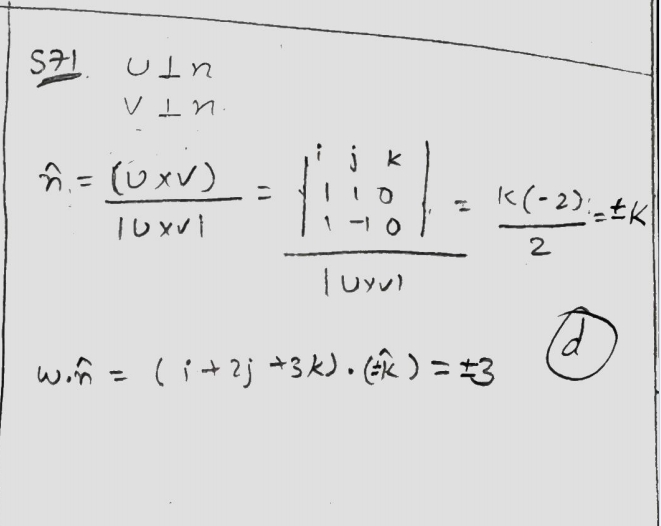 S71. U ⊥ n
V ⊥ n.
n̂ = (U×V) / |U×V| = | i j k | 1 1 0 | 1 -1 0 | / |U×V| = k(-2) / 2 = ±k
w.n̂ = (i + 2j + 3k) . (±k̂) = ±3
d